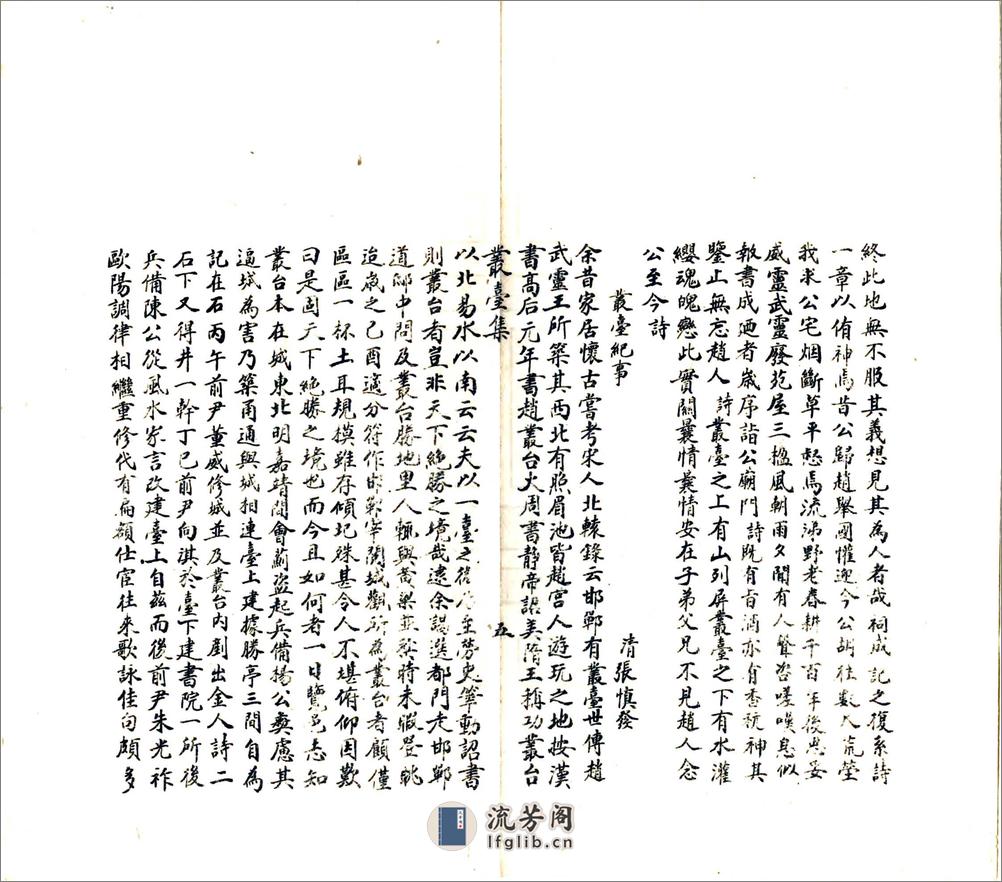 終此地無不服其義想見其為人者哉祠成記之復系詩
一章以侑神焉昔公歸趙舉國懽迎今公胡往數人荒塋
我求公宅烟斷草平愁馬流涕野老春耕千百年後忠妥
威靈武靈廢苑屋三楹風朝雨夕聞有人聲咨嗟嘆息似
報書成廼者歲序詣公廟門詩既有旨酒亦有香祝神其
鑒止無忘趙人詩叢臺之上有山列屏叢臺之下有水濯
纓魂魄戀此實關曩情曩情安在子弟父兄不見趙人念
公至今詩
叢臺紀事
清張慎發
余昔家居懷古嘗考宋人北轅錄云邯鄲有叢臺世傳趙
武靈王所築其西北有照眉池皆趙宮人遊玩之地按漢
書高后元年書趙叢台火周書靜帝詔美隋王稱功叢台
叢臺集
五
以北易水以南云云夫以一臺之舊乃至勞史筆動詔書
則叢台者豈非天下絶勝之境哉逮余謁選都門走邯鄲
道郵中問及叢台勝地里人輒與黃粱並對時未暇登眺
迨歲之己酉適分符作邯鄲宰闗城觀所為叢台者顧僅
區區一抔土耳規模雖存傾圮殊甚令人不堪俯仰因歎
曰是固天下絶勝之境也而今且如何者一日覽邑志知
叢台本在城東北明嘉靖間會薊盜起兵備揚公彝慮其
逼城為害乃築甬通與城相連臺上建據勝亭三間自為
記在石丙午前尹董威修城並及叢台內劚出金人詩二
石下又得井一幹丁巳前尹向淇於臺下建書院一所後
兵備陳公從風水家言改建臺上自茲而後前尹朱光祚
歐陽調律相繼重修代有扁額仕宦往來歌詠佳句頗多
流芳阁
lfglib.cn